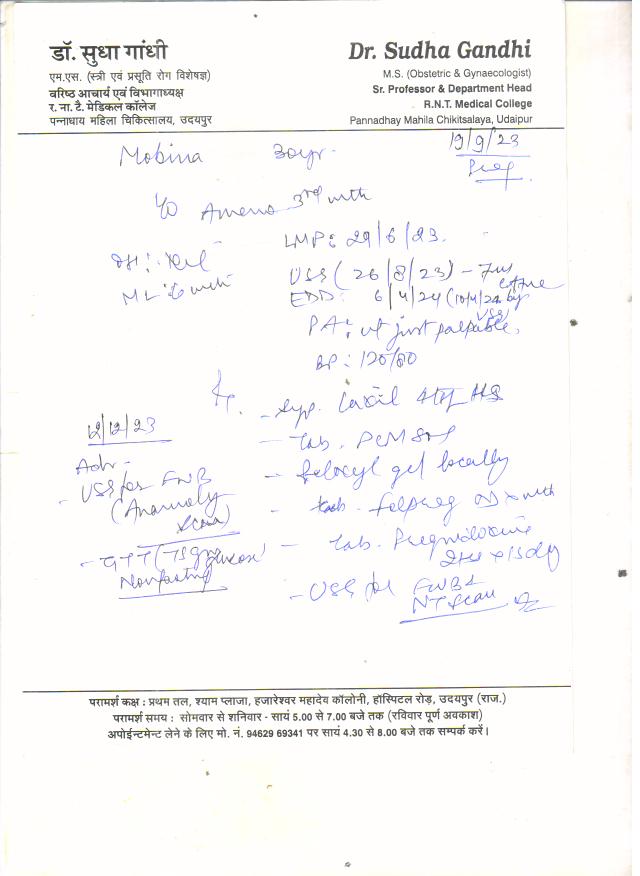 डॉ. सुधा गांधी
एम.एस. (स्त्री एवं प्रसूति रोग विशेषज्ञ)
वरिष्ठ आचार्य एवं विभागाध्यक्ष
र. ना. टै. मेडिकल कॉलेज
पन्नाधाय महिला चिकित्सालय, उदयपुर
Dr. Sudha Gandhi
M.S. (Obstetric & Gynaecologist)
Sr. Professor & Department Head
R.N.T. Medical College
Pannadhay Mahila Chikitsalaya, Udaipur
Mobina 30yr.
19/9/23
Preg
Ameno 3rd mth
LMP: 29/6/23.
ML: 6 mth
USS (26/8/23) - 7
EDD: 6/4/24 (10/4/24 by USS)
PA: ut just palpable,
BP: 120/80
- Syp. 4tsf HS
- Tab. PCM SOS
- gel locally
- Tab. Felpreg OD x mth
- Tab.
- USS for FWB & NT Scan
12/12/23
Adv -
- USS for FWB
(Anamoly Scan)
- GTT (75gm glucose)
Nonfasting
परामर्श कक्ष : प्रथम तल, श्याम प्लाजा, हजारेश्वर महादेव कॉलोनी, हॉस्पिटल रोड़, उदयपुर (राज.)
परामर्श समय : सोमवार से शनिवार - सायं 5.00 से 7.00 बजे तक (रविवार पूर्ण अवकाश)
अपोईन्टमेन्ट लेने के लिए मो. नं. 94629 69341 पर सायं 4.30 से 8.00 बजे तक सम्पर्क करें।